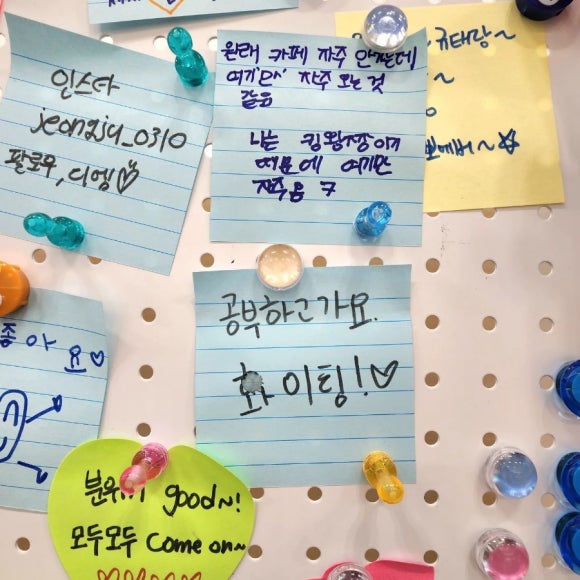 인스타
jeongju_0310
팔로우, 디엠♡
원래 카페 자주 안가는데
여기만 자주 오는 것
같음
나는 킹왕짱이기
때문에 여기만
자주옴 ㅋ
규태랑~
~
뽀에버~☆
좋아요♡
공부하고가요.
화이팅!♡
분위기 good~!
모두모두 come on~
♡♡♡♡♡